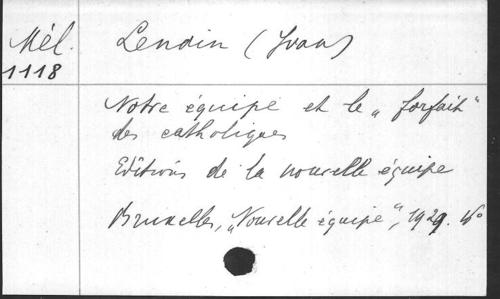 Mél. Lenoin (Yvan)
1118
Notre équipe et le „forfait"
des catholiques
Editions de la nouvelle équipe
Bruxelles, „Nouvelle équipe", 1929.